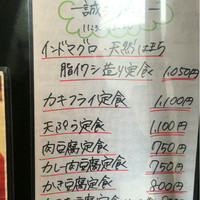 誠
インドマグロ・天然はまち
脂イワシ造り定食 1,050円
カキフライ定食 1,100円
天ぷら定食 1,100円
肉豆腐定食 750円
カレー肉豆腐定食 750円
かき豆腐定食 800円